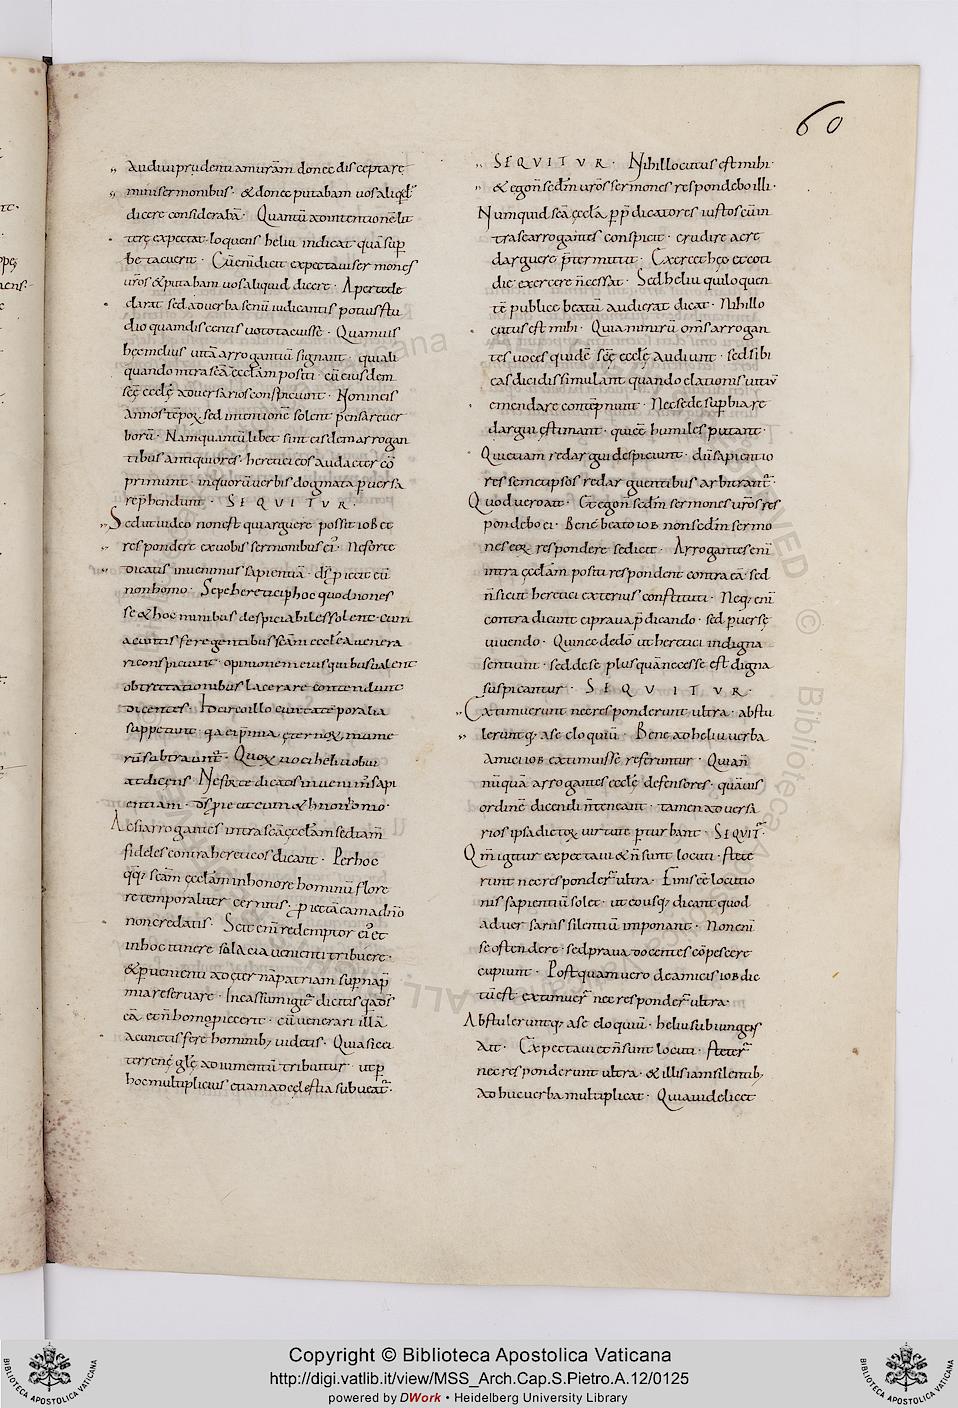 60
Audiui prudentiam ur̄am donec disceptarę
mini sermonibus · & donec putabam uos aliqd̄
dicere considerabā · Quantū ad intentionē lit
terę expectat · loquens heliu indicat quā sup̄
be tacuerit · Cū enī dicit expectaui sermones
ur̄os & putabam uos aliquid dicere · Aperte de
clarat sed ad uerba senū iudicantis potius stu
dio quam discentis uoto tacuisse · Quamuis
hec melius uitā arrogantiū signant · qui ali
quando intra scā ęcclam positi · cū eiusdem
scę ecclę aduersarios conspiciunt · Non in eis
annos tēpoꝝ sed intentionē solent pensare uer
borū · Nam quantū libet sint eisdem arrogan
tibus antiquiores · heretici eos audacter cō
primunt · in quorū uerbis dogmata puersa
rep̄hendunt · SEQUITUR ·
Sed ut uideo non est qui arguere possit iob et
respondere ex uobis sermonibus ei᾿ · Ne forte
dicatis inuenimus sapientiā · ds̄ piecit eū
non homo · Sepe heretici p hoc quod non es
se & hominibus despiciabiles solent · cum
a cunctis fere gentibus scām eccleā uenera
ri conspiciunt · opinionem eius quibus ualent
obtrectationibus lacerare contendunt
dicentes · Idcirco illo cuncta tēporalia
suppetunt · q̄a ei p̄mia ęternoꝝ mune
rū subtrauntr̄ · Quoꝝ uoci heliu obui
at dicens · Ne forte dicatis inuenim̄ sapi
entiam · ds̄ piecit eum & non homo ·
Ac si arrogantes intra scā ęcclām sed tam̄
fideles contra hereticos dicant · Per hoc
qd̄ scām ęcclam in honore hominū flore
re temporaliter cernitis · p̄iectā eam a dn̄o
non credatis · Scit enī redemptor ei᾿ et
in hoc itinere solacia uenienti tribuere ·
& p̄uenienti ad eternā patriam sup̄na p̄
mia reseruare · In cassum igitr̄ dicitis qa ds̄
eā et n̄ homo p̄iecerit · cū uenerari illā
a cunctis fere hominib; uidetis · Quia sic ei
terrenę glę adiumentū tribuitur · ut p̄
hoc multiplicius etiam ad ęlestia subueatr̄ ·
SEQUITUR · Nihil locutus est mihi ·
& ego n̄ scd̄m ur̄os sermones respondebo illi ·
Numquid scā ęcclā p̄p̄ dicatores iustos cū in
tra se arrogantes conspicit · erudire ac re
darguere p̄termittit · Exercet hęc et coti
die exercere n̄ cessat · Sed heliu qui loquen
tē publice beatū audierat dicat · Nihil lo
cutus est mihi · Quia nimirū om̄s arrogan
tes uoces quidē scę ecclę audiunt · sed sibi
eas dici dissimulant quando elationis uitiū
emendare contēpnunt · Nec se de sup̄bia re
dargui ęstimant · qui eē humiles putant ·
Qui etiam redargui despiciunt · dū sapientio
res semeipsos redarguentibus arbitrantr̄ ·
Quod uero ait · Et ego n̄ scd̄m sermones ur̄os res
pondebo ei · Bene beato iob non scd̄m sermo
nes eoꝝ respondere se dicit · Arrogantes enī
intra ęcclām positi respondent contra eā · sed
n̄ sicut heretici exterius constituti · Neq; enī
contra dicunt ei praua p̄dicando · sed p̄uersę
uiuendo · Qui nec de dō ut heretici indigna
sentiunt · sed de se plus quā necesse est digna
suspicantur · SEQUITUR ·
Extimuerunt nec responderunt ultra · abstu
leruntq; a se eloquiū · Bene ad heliu uerba
amici iob extimuisse referuntur · Quia n̄
nūquā arrogantes ecclę defensores · quāuis
ordinē dicendi n̄ teneant · tamen aduersa
rios ipsa dictoꝝ uirtute p̄turbant · SEQUITR̄ ·
Qm̄ igitur expectaui & n̄ sunt locuti · stete
runt nec responder̄ ultra · Finis eē locutio
nis sapientiū solet · ut eo usq; dicant quod
aduersariis silentiū imponant · Non enī
se ostendere · sed praua docentes cōpescere
cupiunt · Postquam uero de amicis iob dic
tū est extimuer̄ nec responder̄ ultra ·
Abstuleruntq; a se eloquiū · heliu subiungens
ait · Expectaui et n̄ sunt locuti · steter̄
nec responderunt ultra · & illis iam silentib;
adhuc uerba multiplicat · Quia uidelicet
Copyright © Biblioteca Apostolica Vaticana
http://digi.vatlib.it/view/MSS_Arch.Cap.S.Pietro.A.12/0125
powered by DWork • Heidelberg University Library